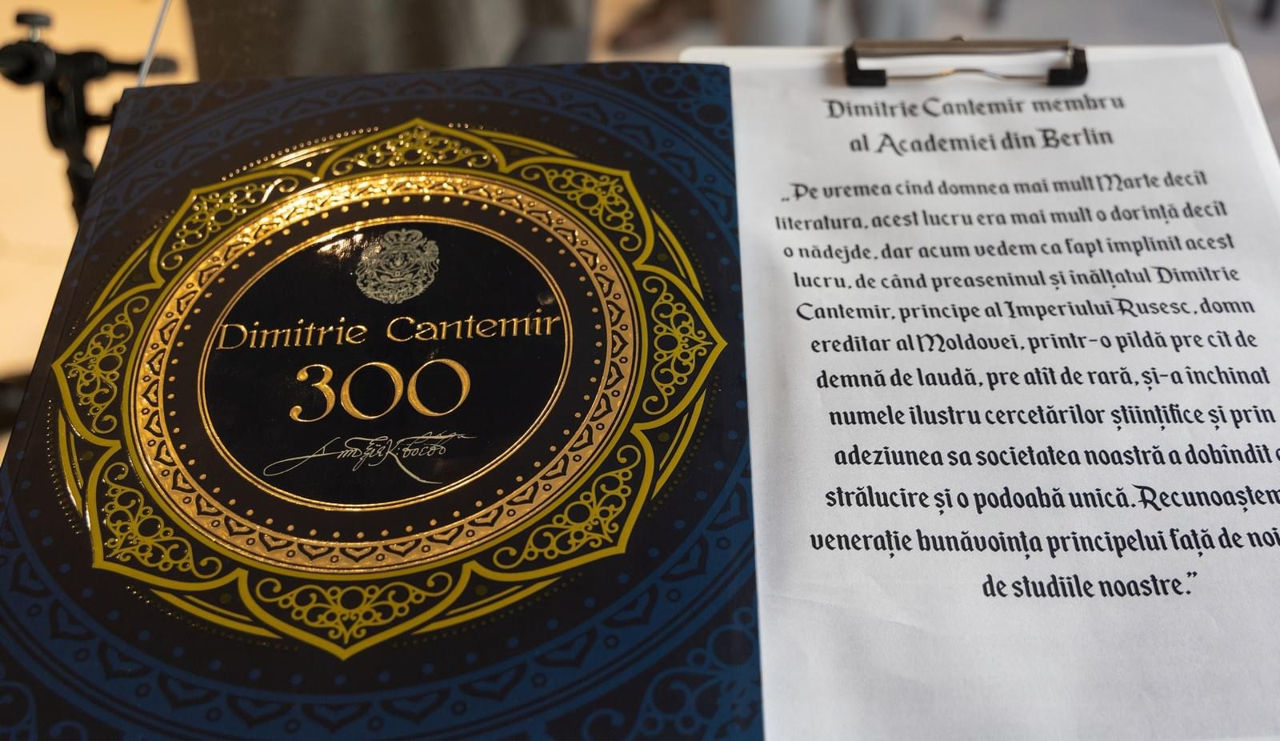 Dimitrie Cantemir
300
Dimitrie Cantemir membru
al Academiei din Berlin
„Pe vremea cînd domnea mai mult Marte decît
literatura, acest lucru era mai mult o dorință decît
o nădejde, dar acum vedem ca fapt implinit acest
lucru, de când preaseninul și inălțatul Dimitrie
Cantemir, principe al Imperiului Rusesc, domn
ereditar al Moldovei, printr-o pildă pre cît de
demnă de laudă, pre atît de rară, și-a închinat
numele ilustru cercetărilor științifice și prin
adeziunea sa societatea noastră a dobîndit
strălucire și o podoabă unică. Recunoaștem
venerație bunăvoința principelui față de noi
de studiile noastre.”